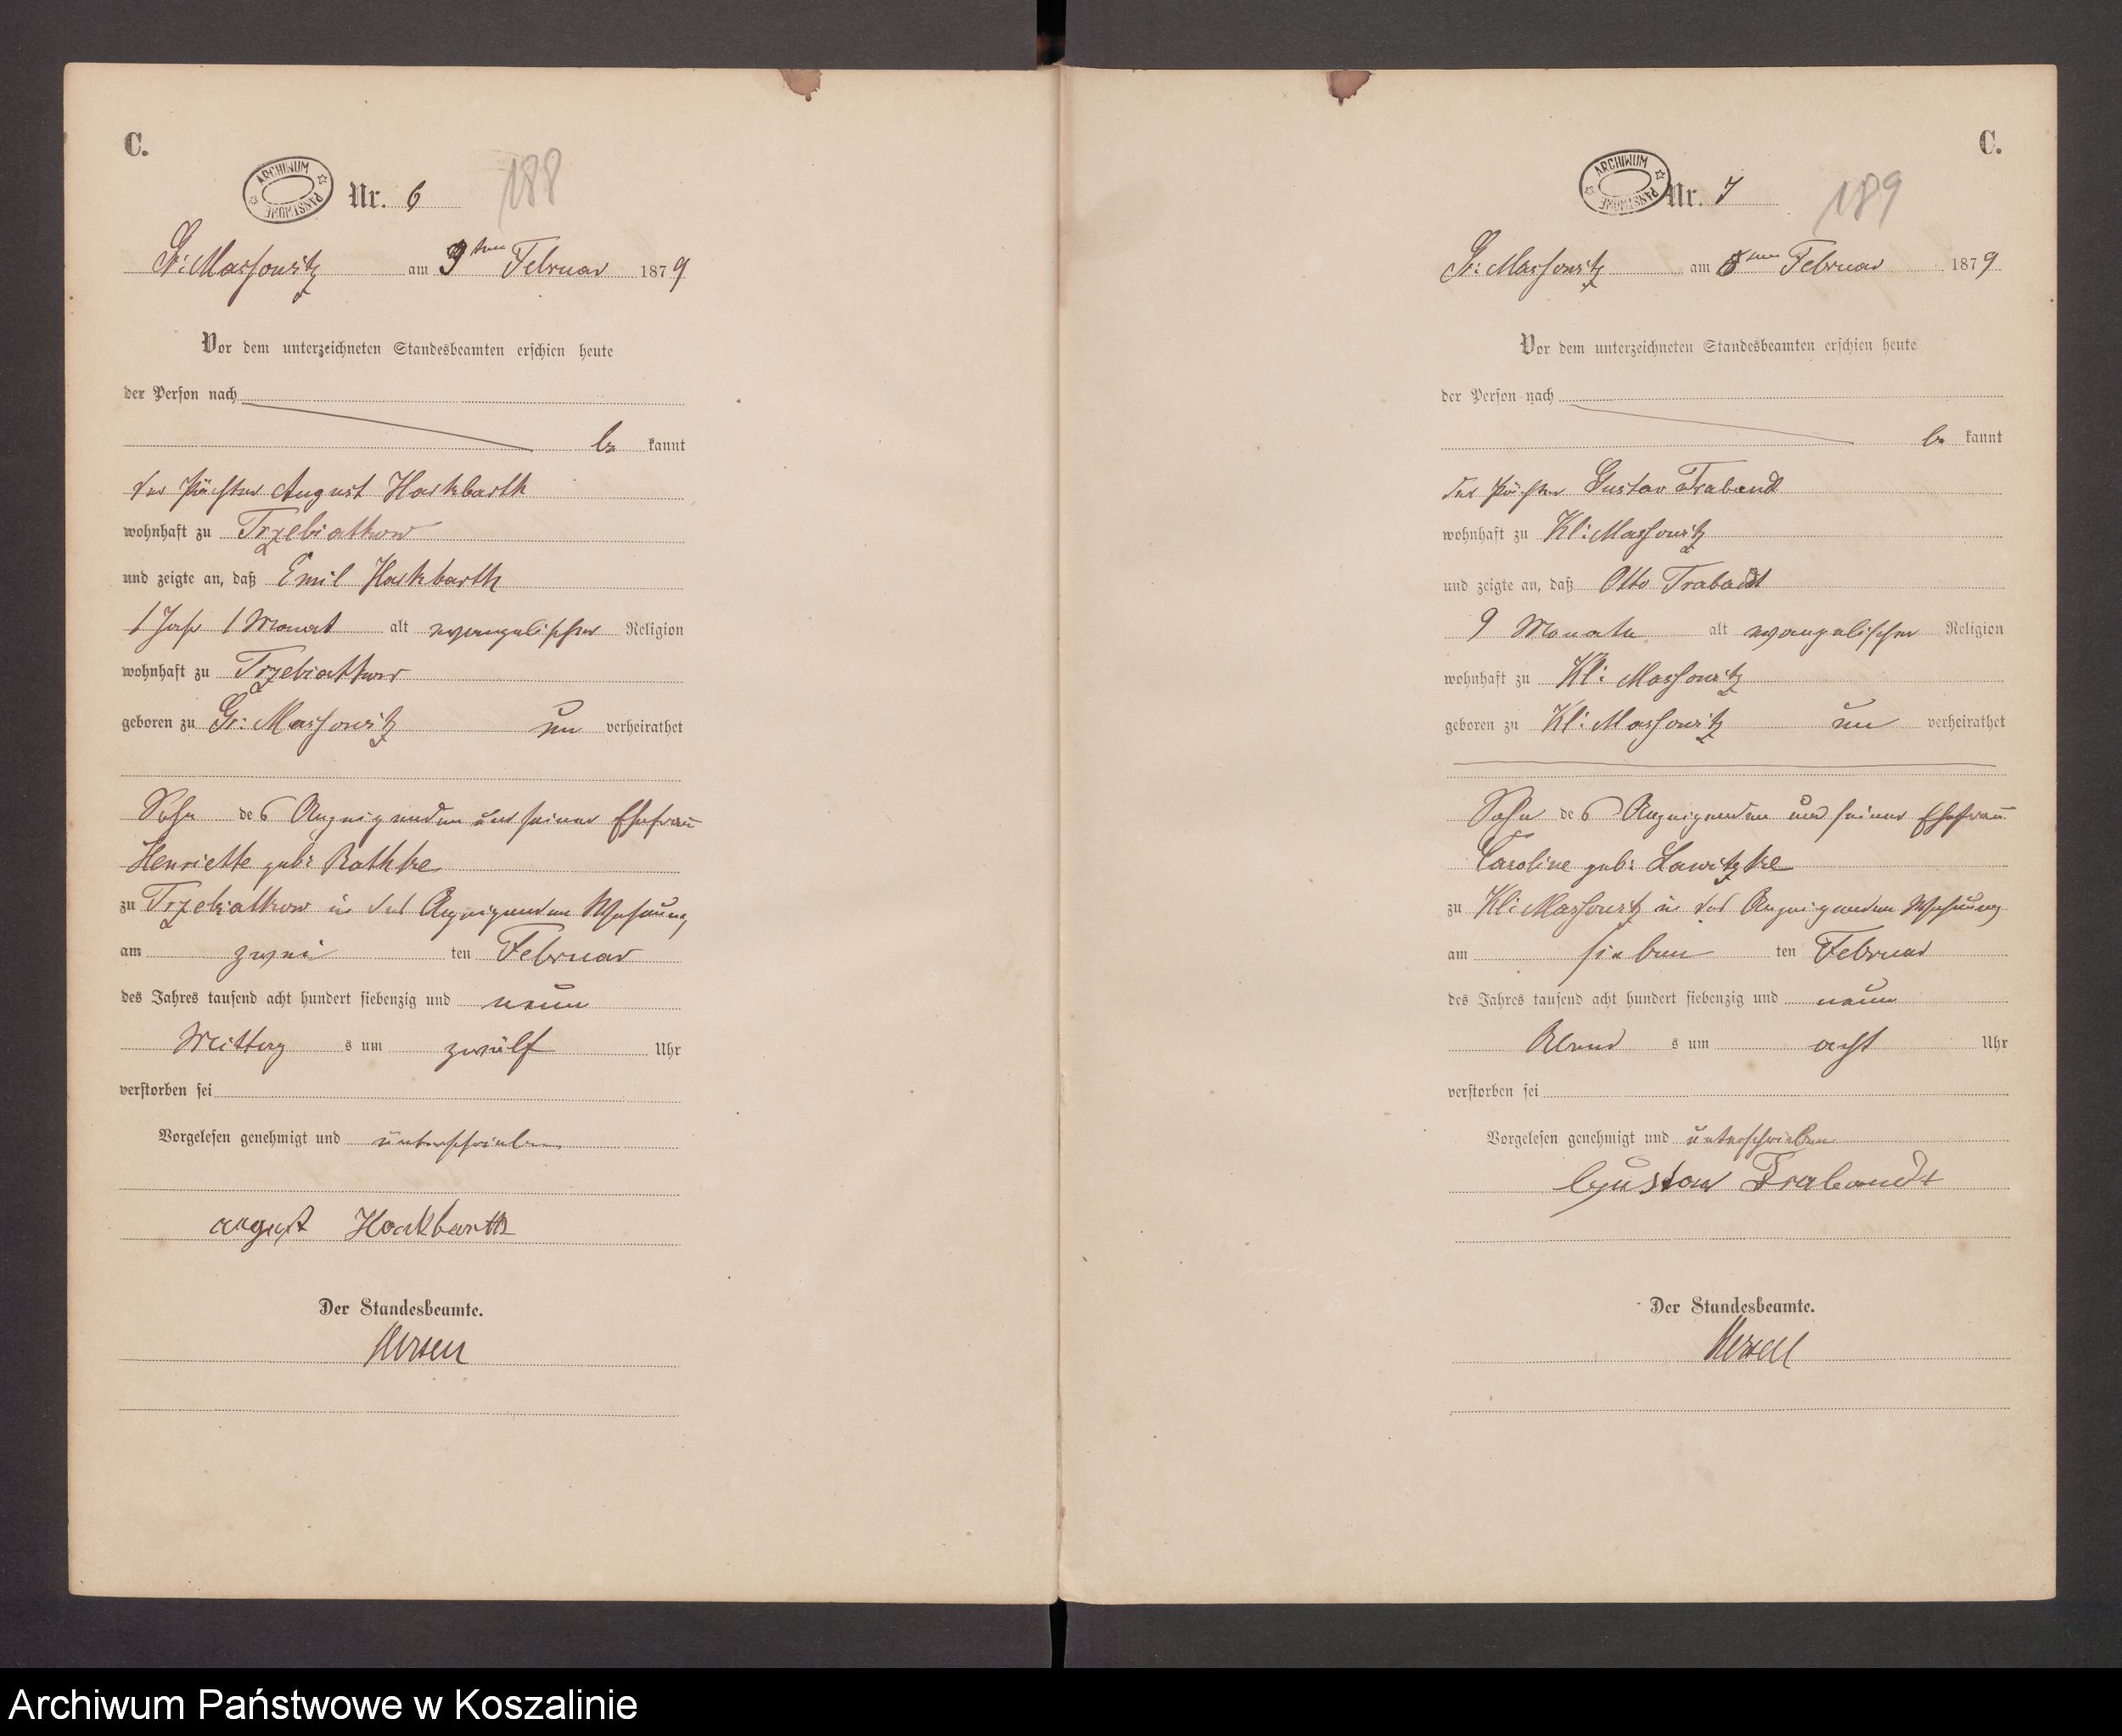 C.
ARCHIWUM PAŃSTWOWE
Nr. 6
188
Gr: Massowitz am 3ten Februar 1879
Vor dem unterzeichneten Standesbeamten erschien heute
der Person nach
be kannt
der Pächter August Hackbarth
wohnhaft zu Trzebiatkow
und zeigte an, daß Emil Hackbarth
1 Jahr 1 Monat alt evangelischer Religion
wohnhaft zu Trzebiatkow
geboren zu Gr: Massowitz un verheirathet
Sohn des Anzeigenden und seiner Ehefrau
Henriette geb: Rathke
zu Trzebiatkow in des Anzeigenden Wohnung
am zwei ten Februar
des Jahres tausend acht hundert siebenzig und neun
Mittag s um zwölf Uhr
verstorben sei
Vorgelesen genehmigt und unterschrieben
august Hackbarth
Der Standesbeamte.
C.
ARCHIWUM PAŃSTWOWE
Nr. 7
189
Gr: Massowitz am 8ten Februar 1879
Vor dem unterzeichneten Standesbeamten erschien heute
der Person nach
be kannt
der Pächter Gustav Traband
wohnhaft zu Kl: Massowitz
und zeigte an, daß Otto Trabandt
9 Monate alt evangelischer Religion
wohnhaft zu Kl: Massowitz
geboren zu Kl: Massowitz un verheirathet
Sohn des Anzeigenden und seiner Ehefrau
Caroline geb: Lawitzke
zu Kl: Massowitz in des Anzeigenden Wohnung
am sieben ten Februar
des Jahres tausend acht hundert siebenzig und neun
Abend s um acht Uhr
verstorben sei
Vorgelesen genehmigt und unterschrieben
Gustav Trabandt
Der Standesbeamte.
Archiwum Państwowe w Koszalinie